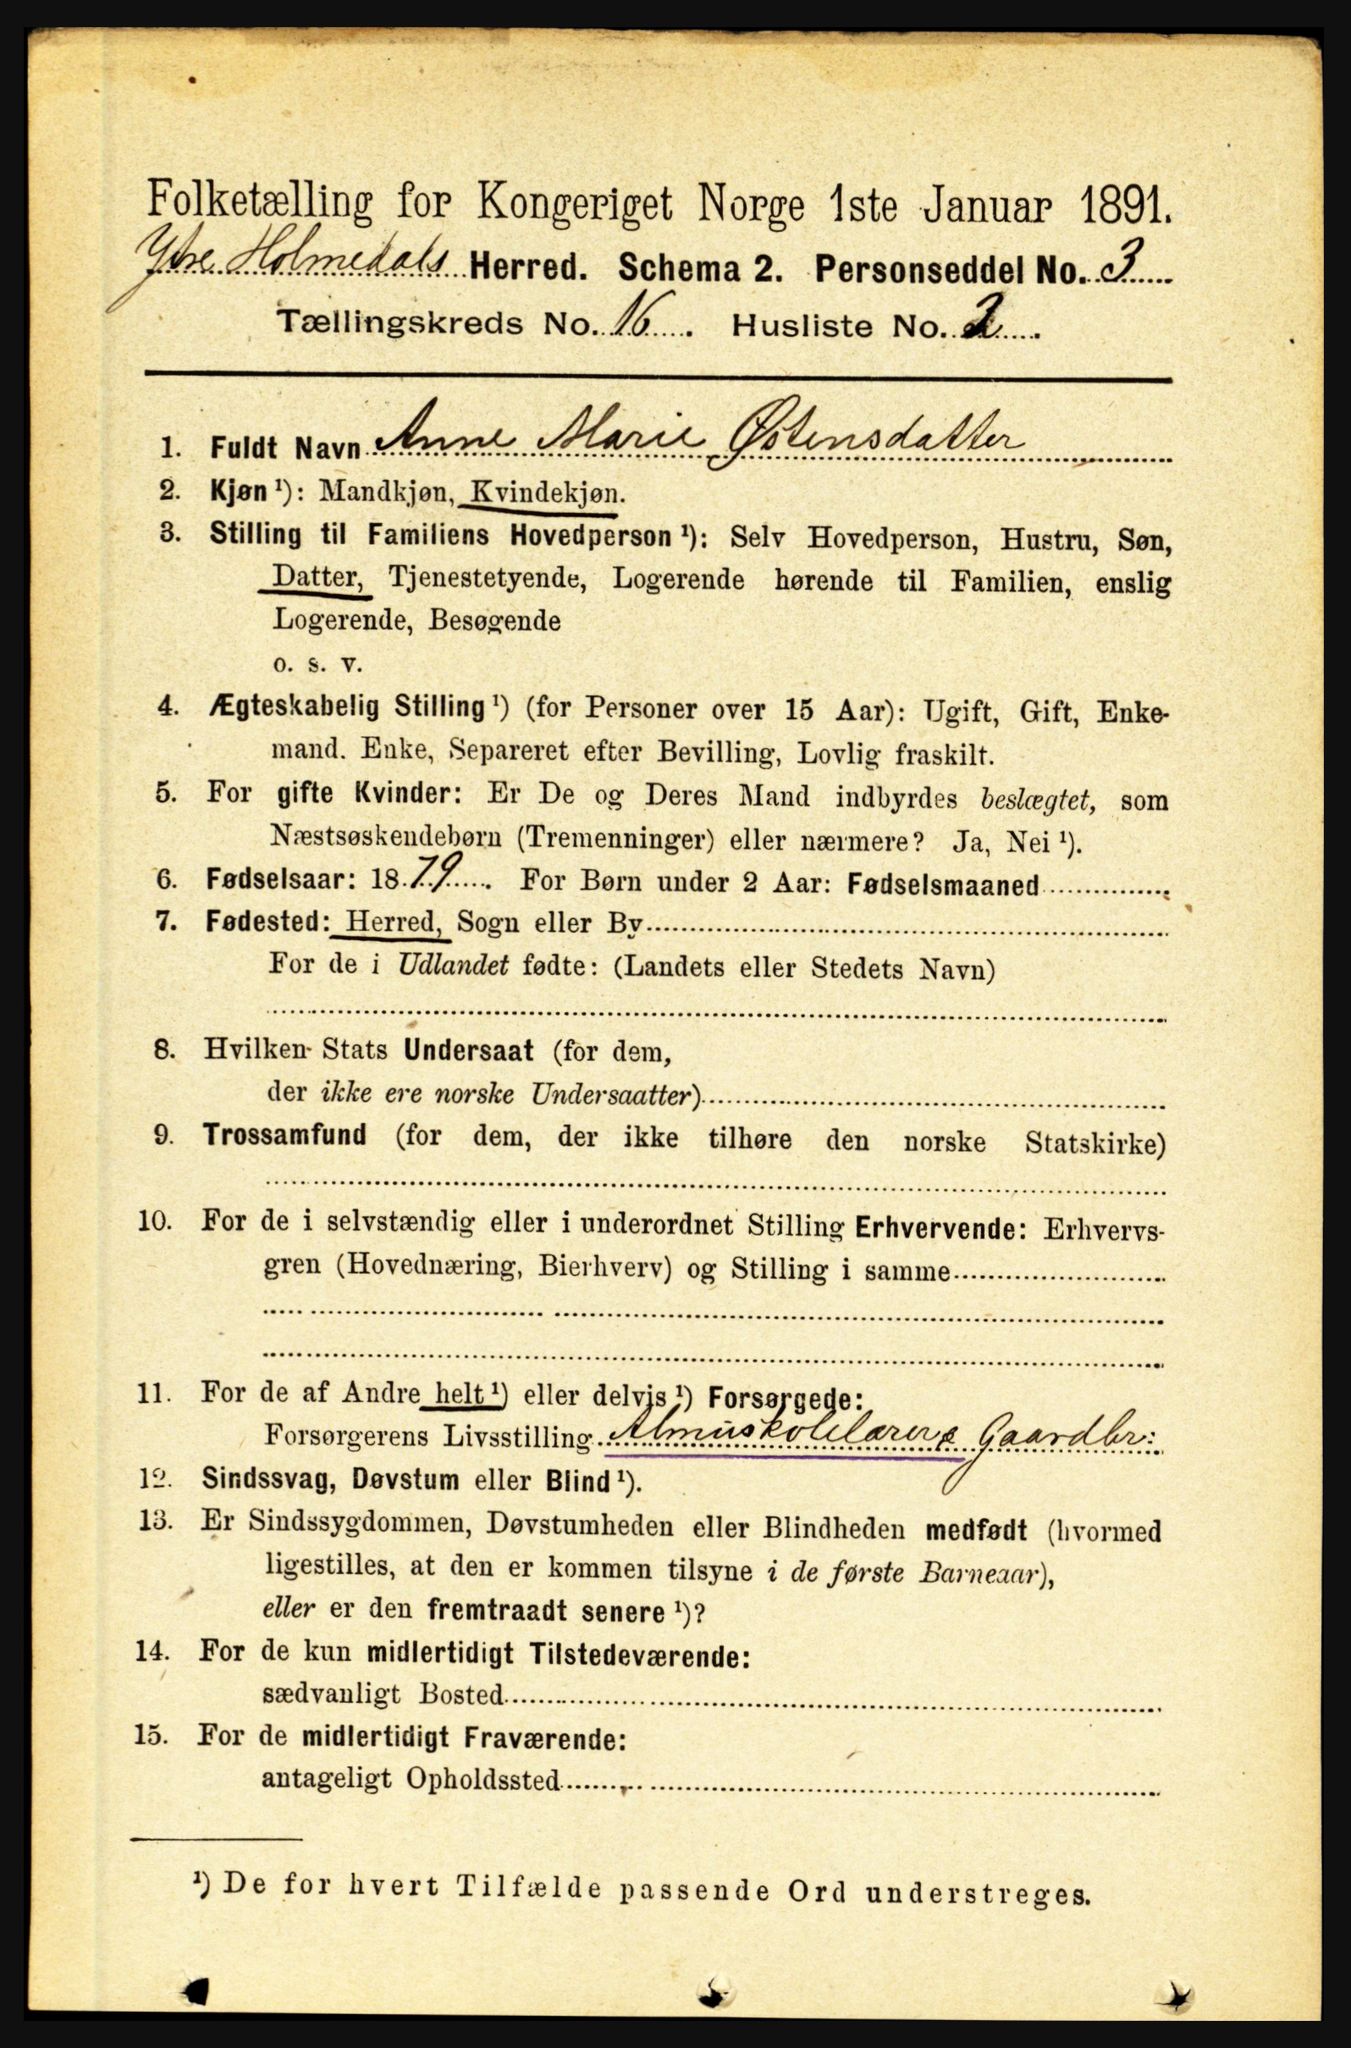 Folketælling for Kongeriget Norge 1ste Januar 1891.
Ytre Holmedals Herred. Schema 2. Personseddel No. 3
Tællingskreds No. 16. Husliste No. 2.
1. Fuldt Navn Anne Marie Østensdatter
2. Kjøn ¹): Mandkjøn, Kvindekjøn.
3. Stilling til Familiens Hovedperson ¹): Selv Hovedperson, Hustru, Søn,
Datter, Tjenestetyende, Logerende hørende til Familien, enslig
Logerende, Besøgende
o. s. v.
4. Ægteskabelig Stilling ¹) (for Personer over 15 Aar): Ugift, Gift, Enke-
mand. Enke, Separeret efter Bevilling, Lovlig fraskilt.
5. For gifte Kvinder: Er De og Deres Mand indbyrdes beslægtet, som
Næstsøskendebørn (Tremenninger) eller nærmere? Ja, Nei ¹).
6. Fødselsaar: 1879. For Børn under 2 Aar: Fødselsmaaned
7. Fødested: Herred, Sogn eller By
For de i Udlandet fødte: (Landets eller Stedets Navn)
8. Hvilken Stats Undersaat (for dem,
der ikke ere norske Undersaatter)
9. Trossamfund (for dem, der ikke tilhøre den norske Statskirke)
10. For de i selvstændig eller i underordnet Stilling Erhvervende: Erhvervs-
gren (Hovednæring, Bierhverv) og Stilling i samme
11. For de af Andre helt ¹) eller delvis ¹) Forsørgede:
Forsørgerens Livsstilling Almuskolelærer & Gaardbr:
12. Sindssvag, Døvstum eller Blind ¹).
13. Er Sindssygdommen, Døvstumheden eller Blindheden medfødt (hvormed
ligestilles, at den er kommen tilsyne i de første Barneaar),
eller er den fremtraadt senere ¹)?
14. For de kun midlertidigt Tilstedeværende:
sædvanligt Bosted
15. For de midlertidigt Fraværende:
antageligt Opholdssted
¹) De for hvert Tilfælde passende Ord understreges.